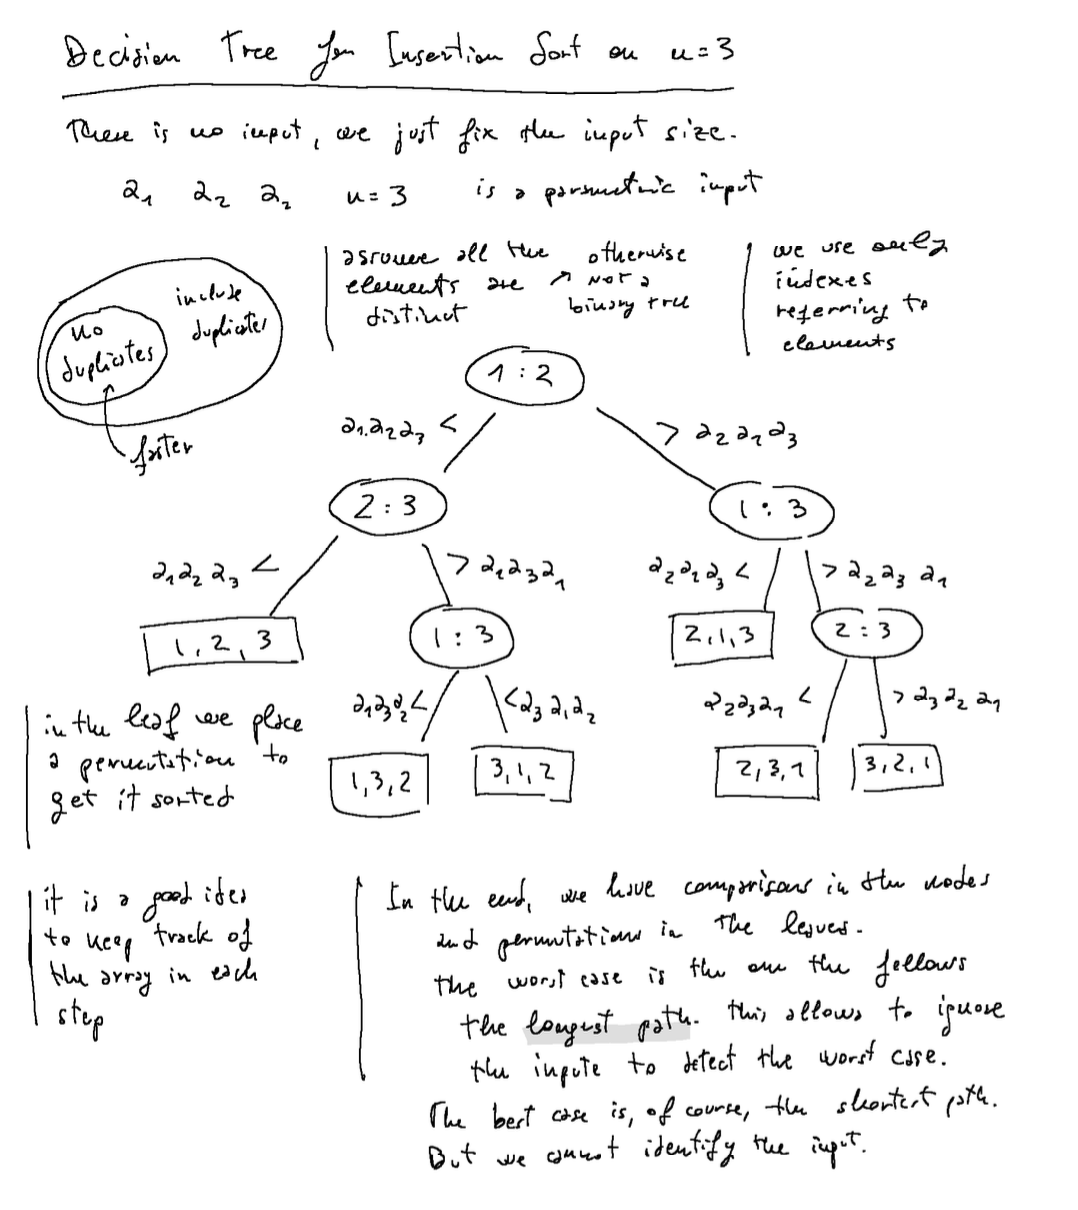 Decision Tree for Insertion Sort on n=3
There is no input, we just fix the input size.
a1 a2 a2 n=3 is a parametric input
include
duplicates
no
duplicates
faster
assume all the
elements are
distinct
otherwise
↗ NOT a
binary tree
we use only
indexes
referring to
elements
1 : 2
a1.a2a3 <
> a2 a1 a3
2 : 3
1 : 3
a1a2 a3 <
> a1a3a1
a2a1a3 <
> a2a3 a1
1, 2, 3
1 : 3
2,1,3
2 : 3
a1a3a2 <
< a3 a1a2
a2a3a1 <
> a3a2 a1
1,3,2
3,1,2
2,3,1
3,2,1
in the leaf we place
a permutation to
get it sorted
it is a good idea
to keep track of
the array in each
step
In the end, we have comparisons in the nodes
and permutations in the leaves.
the worst case is the one the follows
the longest path. this allows to ignore
the inpute to detect the worst case.
The best case is, of course, the shortest path.
But we cannot identify the input.